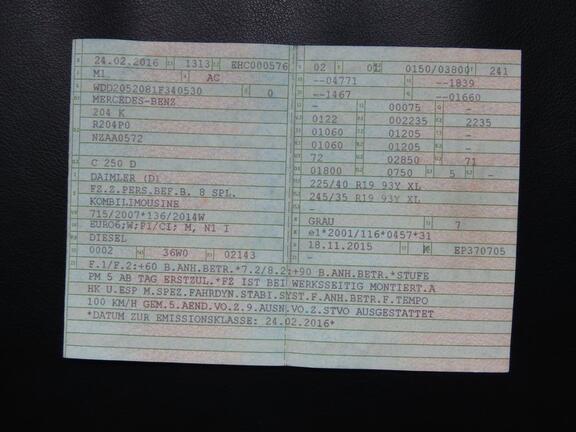 24.02.2016 1313 EHC000576
M1 AC
WDD2052081F340530 0
MERCEDES-BENZ
204 K
R204P0
NZAA0572
C 250 D
DAIMLER (D)
FZ.Z.PERS.BEF.B. 8 SPL.
KOMBILIMOUSINE
715/2007*136/2014W
EURO6;W;PI/CI; M, N1 I
DIESEL
0002 36W0 02143
02 01 0150/03800 241
--04771 --1839
--1467 --01660
- 00075 -
0122 002235 2235
01060 01205 -
01060 01205 -
72 02850 71
01800 0750 5 -
225/40 R19 93Y XL
245/35 R19 93Y XL
-
GRAU 7
e1*2001/116*0457*31
18.11.2015 K EP370705
F.1/F.2:+60 B.ANH.BETR.*7.2/8.2:+90 B.ANH.BETR.*STUFE
PM 5 AB TAG ERSTZUL.*FZ IST BEI WERKSSEITIG MONTIERT.A
HK U.ESP M.SPEZ.FAHRDYN.STABI.SYST.F.ANH.BETR.F.TEMPO
100 KM/H GEM.5.AEND.VO.Z.9.AUSN.VO.Z.STVO AUSGESTATTET
*DATUM ZUR EMISSIONSKLASSE: 24.02.2016*